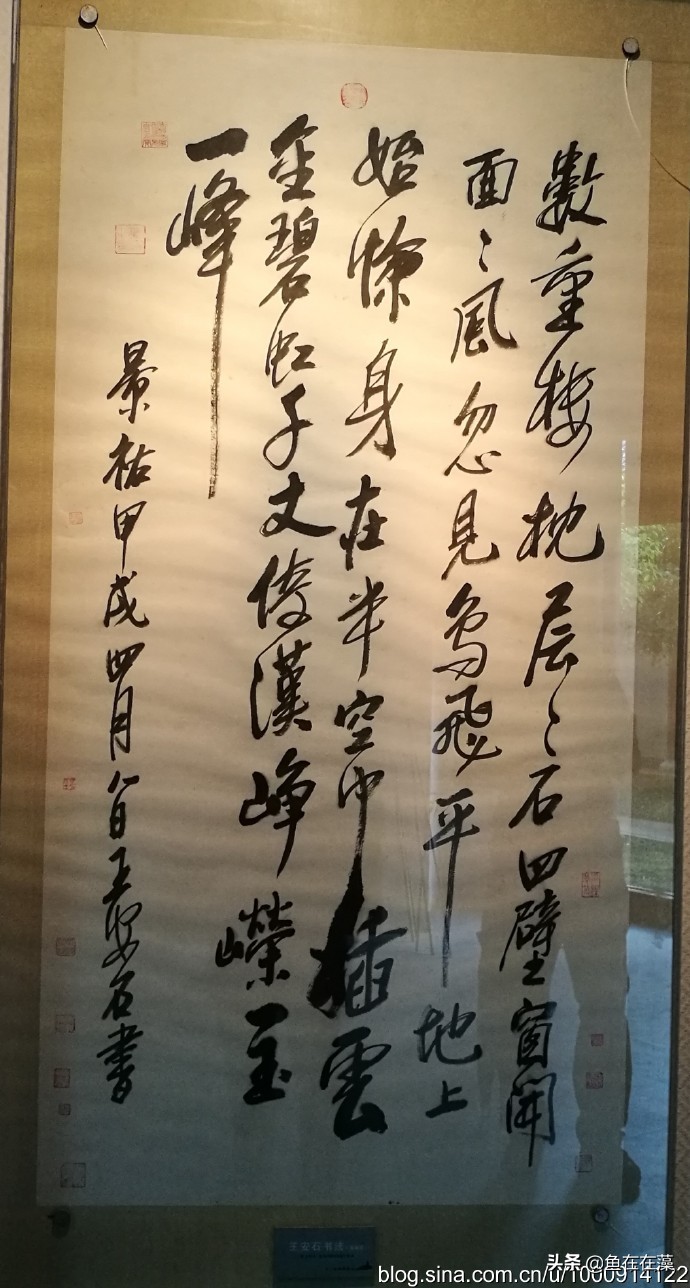 數重樓枕层〻石四壁窗開
面〻風忽見鳥飛平地上
始惊身在半空中插雲
金碧虹千丈倚漢峥嶸一玉
一峰
景祐甲戌四月八日王安石書
王安石书法
头条 @鱼在在藻
blog.sina.com.cn/u/1000914122